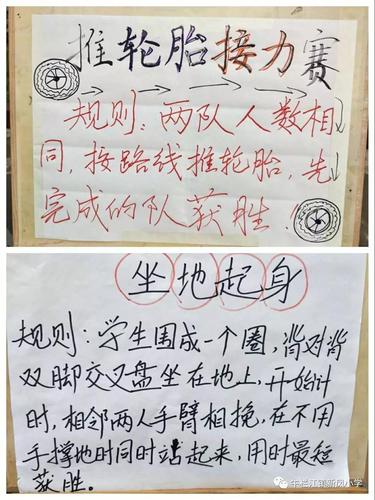 推轮胎接力赛
规则：两队人数相
同，按路线推轮胎，先
完成的队获胜！
坐地起身
规则：学生围成一个圈，背对背
双脚交叉盘坐在地上，开始计
时，相邻两人手臂相挽，在不用
手撑地时同时站起来，用时最短
获胜。
牛栏江镇新凤小学